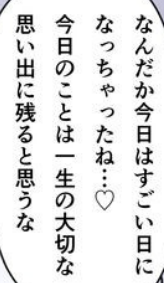 なんだか今日はすごい日に
なっちゃったね…♡
今日のことは一生の大切な
思い出に残ると思うな